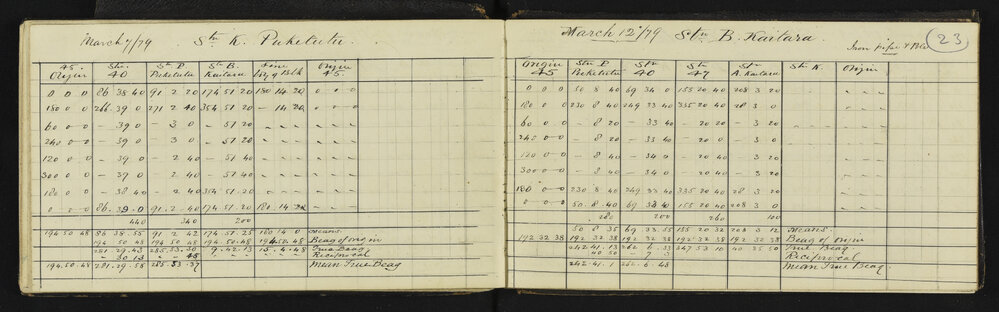 March 7/79 Stn K. Puketutu.
45. Origin Stn. 40 Stn P Puketutu Stn B. Kaitara Line bdy of Blk Origin 45.
0 0 0 86 38 40 91 2 20 174 51 20 180 14 20 0 0 0
180 0 0 266 39 0 271 2 40 354 51 20 - 14 20 0 0 0
60 0 0 - 39 0 - 3 0 - 51 20
240 0 0 - 39 0 - 3 0 - 51 20
120 0 0 - 39 0 - 2 40 - 51 40
300 0 0 - 39 0 - 2 40 - 51 40
180 0 0 - 38 40 - 2 40 354 51 20
0 0 0 86 39 0 91 2 40 174 51 20 180 14 20
440 340 200
194 50 48 86 38 55 91 2 42 174 51 25 180 14 0 Means
194 50 48 194 50 48 194 50 48 194 50 48 Beag of Origin
281 29 43 285 53 30 9 42 13 15 4 48 True Beag
Reciprocal
194 50 48 281 29 58 285 53 37 Mean True Beag
March 12/79 Stn B. Kaitara.
Iron pipe &
23
Origin 45 Stn P Puketutu Stn 40 Stn 47 Stn A. Kaitara Stn K. Origin
0 0 0 50 8 40 69 34 0 155 20 40 208 3 20
180 0 0 230 8 40 249 33 40 335 20 40 28 3 0
60 0 0 - 8 20 - 33 40 - 20 20 - 3 20
240 0 0 - 8 20 - 33 40 - 20 20 - 3 0
120 0 0 - 8 40 - 34 0 - 20 40 - 3 20
300 0 0 - 8 40 - 34 0 - 20 40 - 3 20
180 0 0 230 8 40 249 33 40 335 20 40 28 3 20
0 0 0 50 8 40 69 33 40 155 20 40 208 3 20
280 200 260 100
50 8 35 69 33 55 155 20 32 208 3 12 Means.
192 32 38 192 32 38 192 32 38 192 32 38 192 32 38 Beag of Orgin
242 41 13 262 6 33 347 53 10 40 35 50 True Beag
Reciprocal
242 41 1 262 6 48 Mean True Beag.